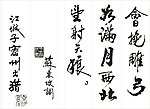 會挽雕弓
如滿月西北
望射天狼
蘇東坡詞
江城子密州出獵